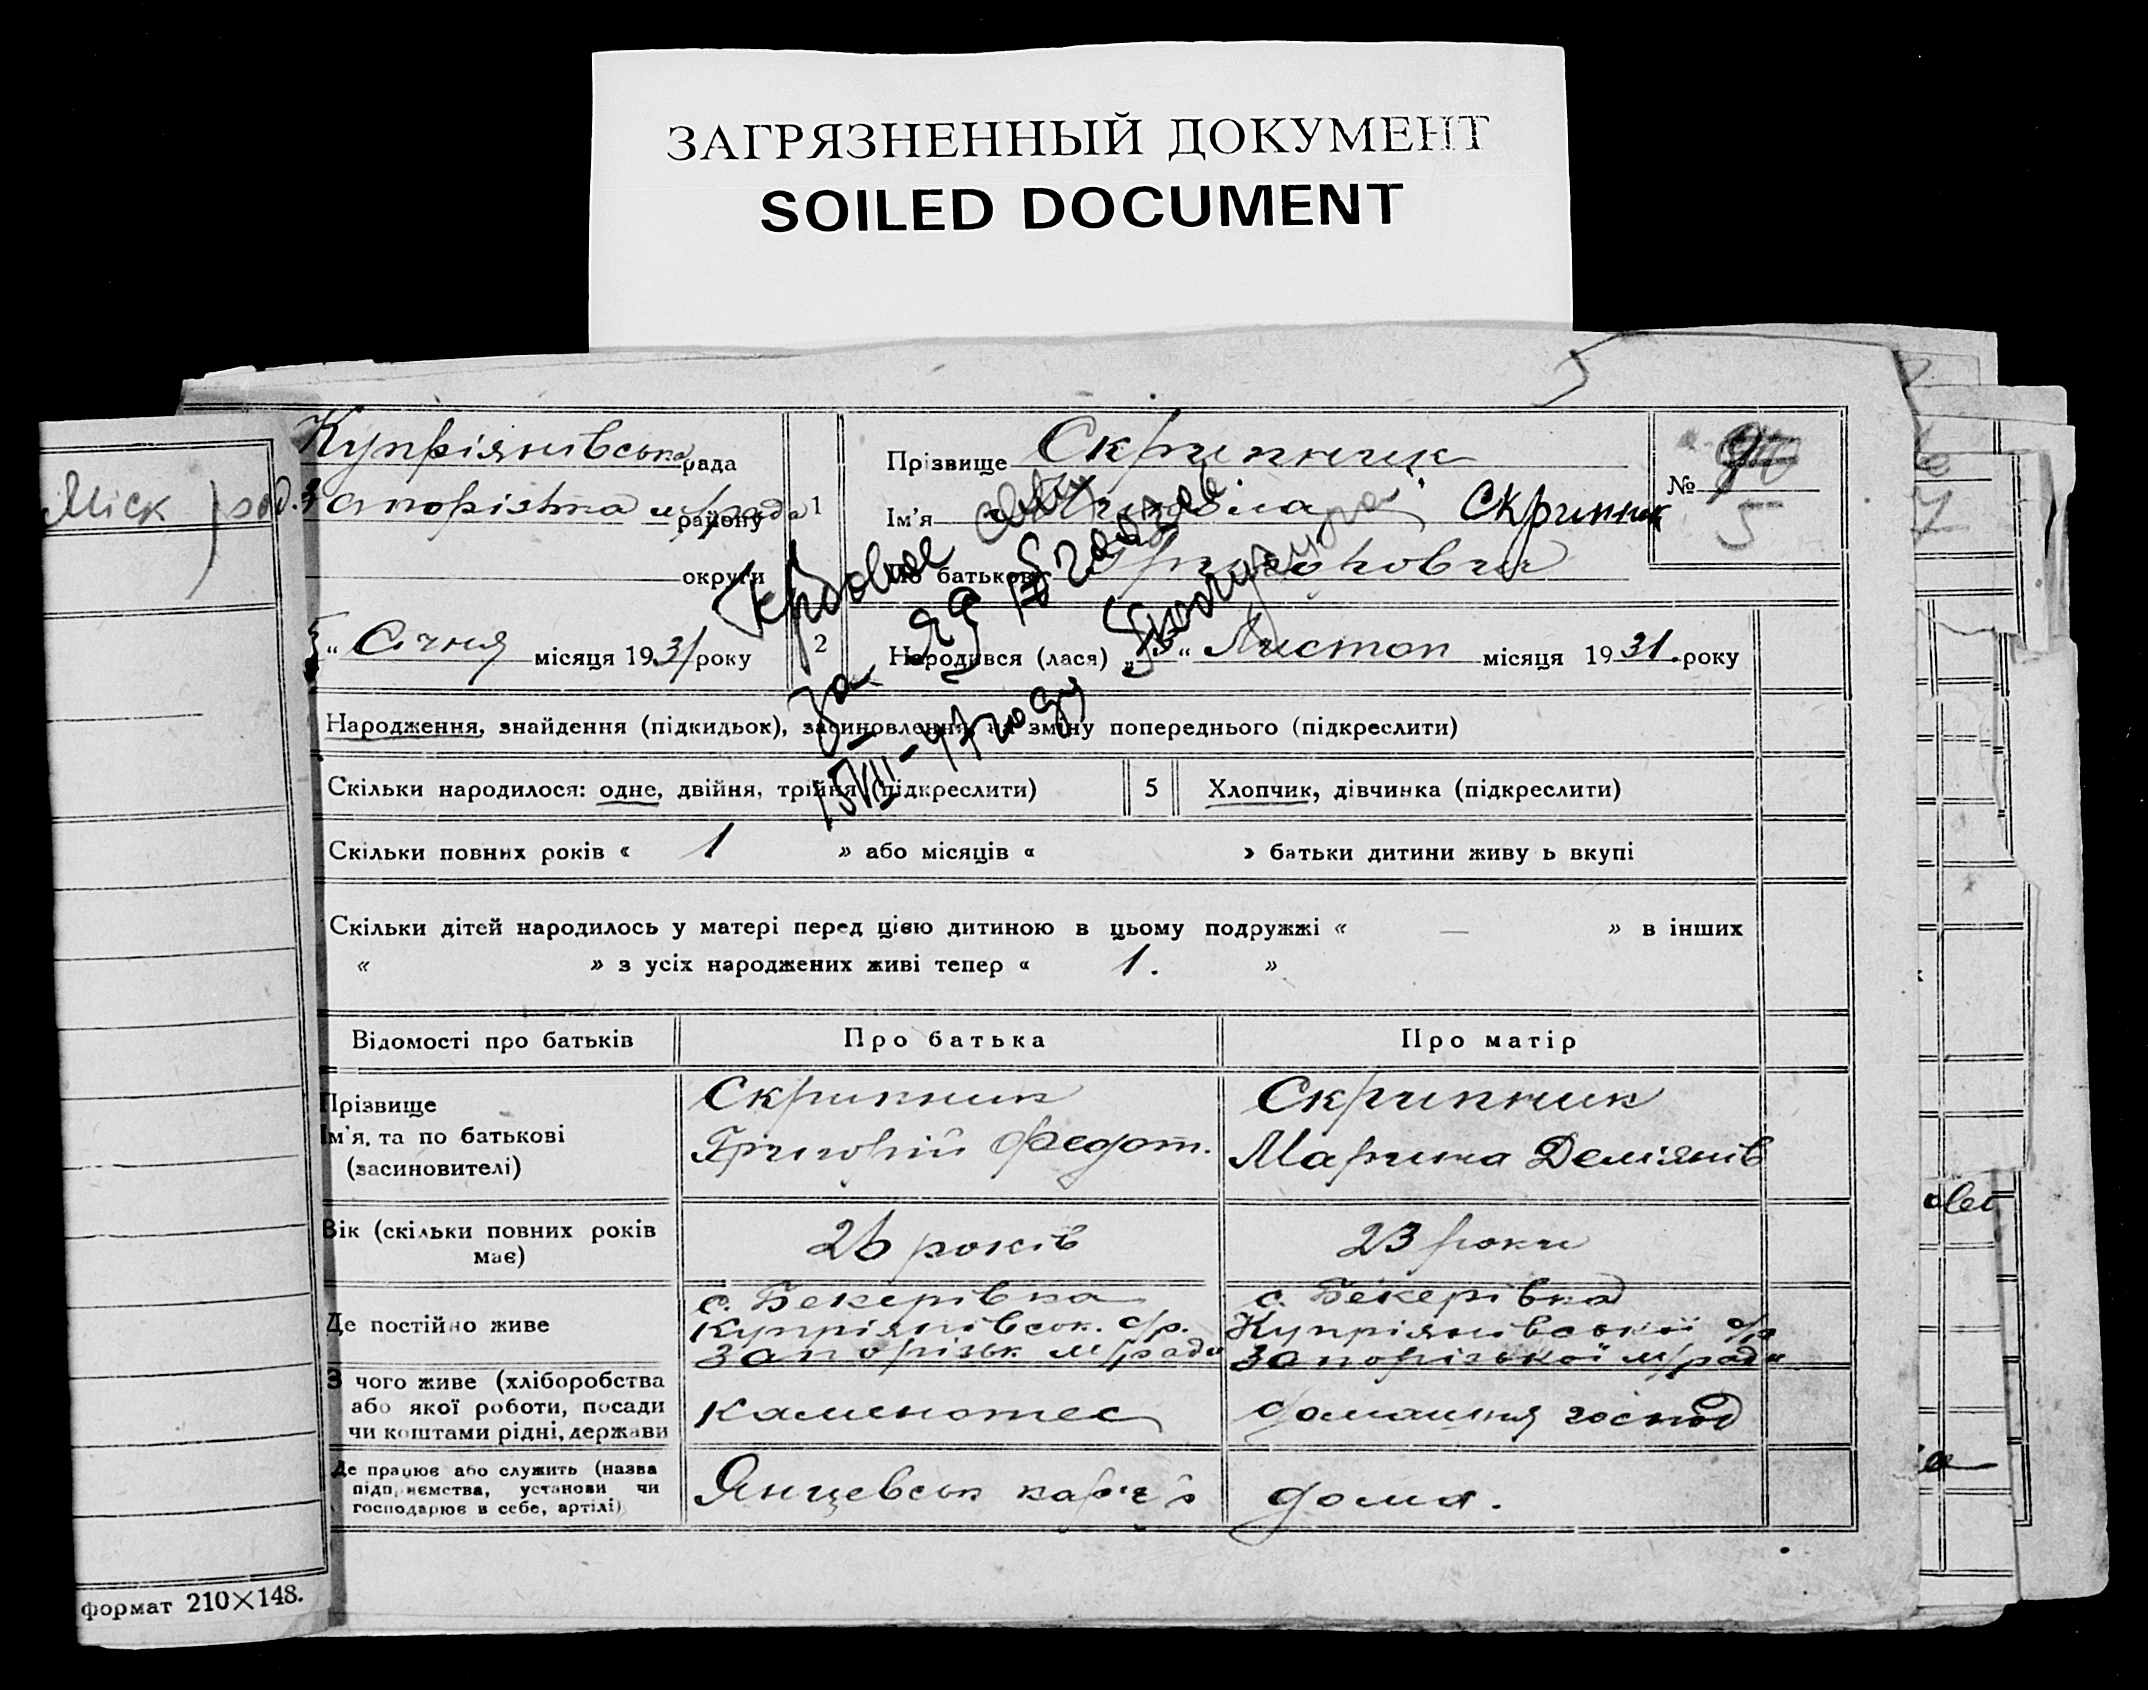 ЗАГРЯЗНЕННЫЙ ДОКУМЕНТ
SOILED DOCUMENT
Купріянівська рада
району
округи
" Січня місяця 1931 року
1
Прізвище Скрипник
Ім'я Скрипник
По батькові
№ 5
2
Народився (лася) " Листоп місяця 1931. року
Народження, знайдення (підкидьок), засиновлення на зміну попереднього (підкреслити)
Скільки народилося: одне, двійня, трійня (підкреслити) 5 Хлопчик, дівчинка (підкреслити)
Скільки повних років « 1 » або місяців « » батьки дитини живу ь вкупі
Скільки дітей народилось у матері перед цією дитиною в цьому подружжі « — » в інших
« » з усіх народжених живі тепер « 1. »
Відомості про батьків Про батька Про матір
Прізвище Скрипник Скрипник
Ім'я, та по батькові Григорій Федот. Марина Деміянів
(засиновителі)
Вік (скільки повних років має) 26 років 23 роки
Де постійно живе
с. Бекерівка
Купріянівськ. с/р.
Запорізьк м/ради
с. Бекерівка
Купріянівської с/р
Запорізької м/ради
З чого живе (хліборобства
або якої роботи, посади
чи коштами рідні, держави
каменотес домашня господ
Де працює або служить (назва
підприємства, установи чи
господарює в себе, артілі)
Янцевськ кар'єр дома.
Міск
формат 210×148.